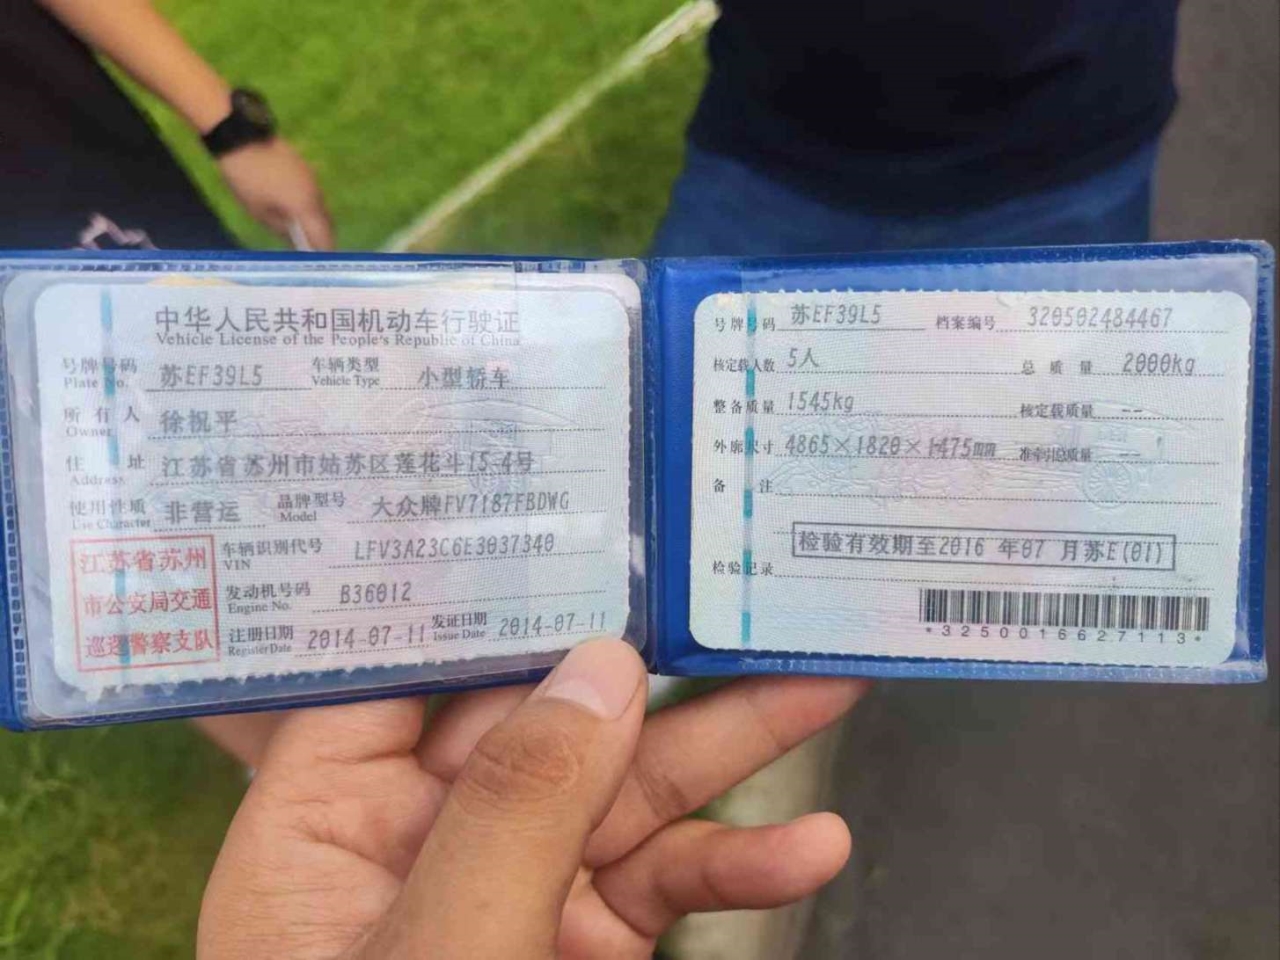 中华人民共和国机动车行驶证
Vehicle License of the People's Republic of China
号牌号码 苏EF39L5 车辆类型 小型轿车
Plate No. Vehicle Type
所有人 徐祝平
Owner
住址 江苏省苏州市姑苏区莲花斗15-4号
Address
使用性质 非营运 品牌型号 大众牌FV7187FBDWG
Use Character Model
江苏省苏州
市公安局交通
巡逻警察支队
车辆识别代号 LFV3A23C6E3037340
VIN
发动机号码 B36012
Engine No.
注册日期 2014-07-11 发证日期 2014-07-11
Register Date Issue Date
号牌号码 苏EF39L5 档案编号 320502484467
核定载人数 5人 总质量 2000kg
整备质量 1545kg 核定载质量 --
外廓尺寸 4865×1820×1475mm 准牵引总质量 --
备注
检验有效期至2016 年07 月苏E(01)
检验记录
*3250016627113*